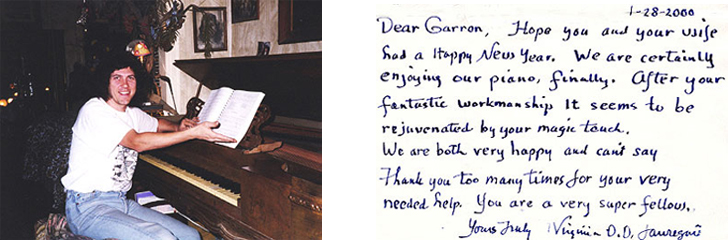 1-28-2000
Dear Garron, Hope you and your wife
had a Happy New Year. We are certainly
enjoying our piano, finally. After your
fantastic workmanship It seems to be
rejuvenated by your magic touch.
We are both very happy and can't say
Thank you too many times for your very
needed help. You are a very super fellow.
Yours Truly Virginia D.D. Jauregui